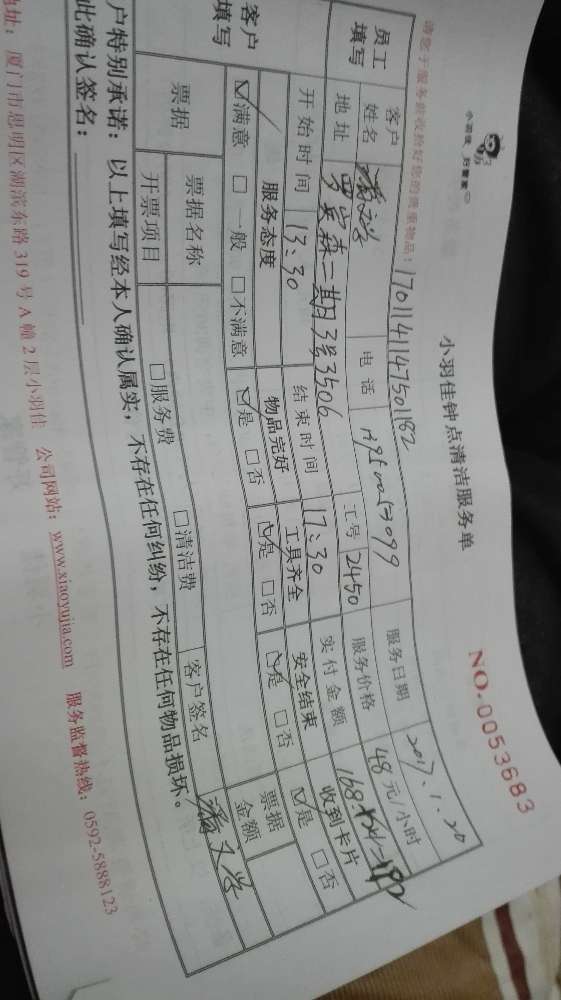 小羽佳 归管家
小羽佳钟点清洁服务单
NO.0053683
请您于服务前收拾好您的贵重物品:
1701141147501182
员工填写
客户姓名
电话
工号 2450
服务日期 2017.1.20
地址
二期3号3506
服务价格 48元/小时
开始时间 13:30
结束时间 17:30
实付金额
客户填写
服务态度 物品完好 工具齐全 安全结束 收到卡片
☑满意 □一般 □不满意 ☑是 □否 ☑是 □否 ☑是 □否 ☑是 □否
票据
票据名称
票据金额
开票项目 □服务费 □清洁费
客户签名
户特别承诺:以上填写经本人确认属实,不存在任何纠纷,不存在任何物品损坏。
此确认签名:
地址:厦门市思明区湖滨东路319号A幢2层小羽佳 公司网站:www.xiaoyujia.com 服务监督热线:0592-5888123